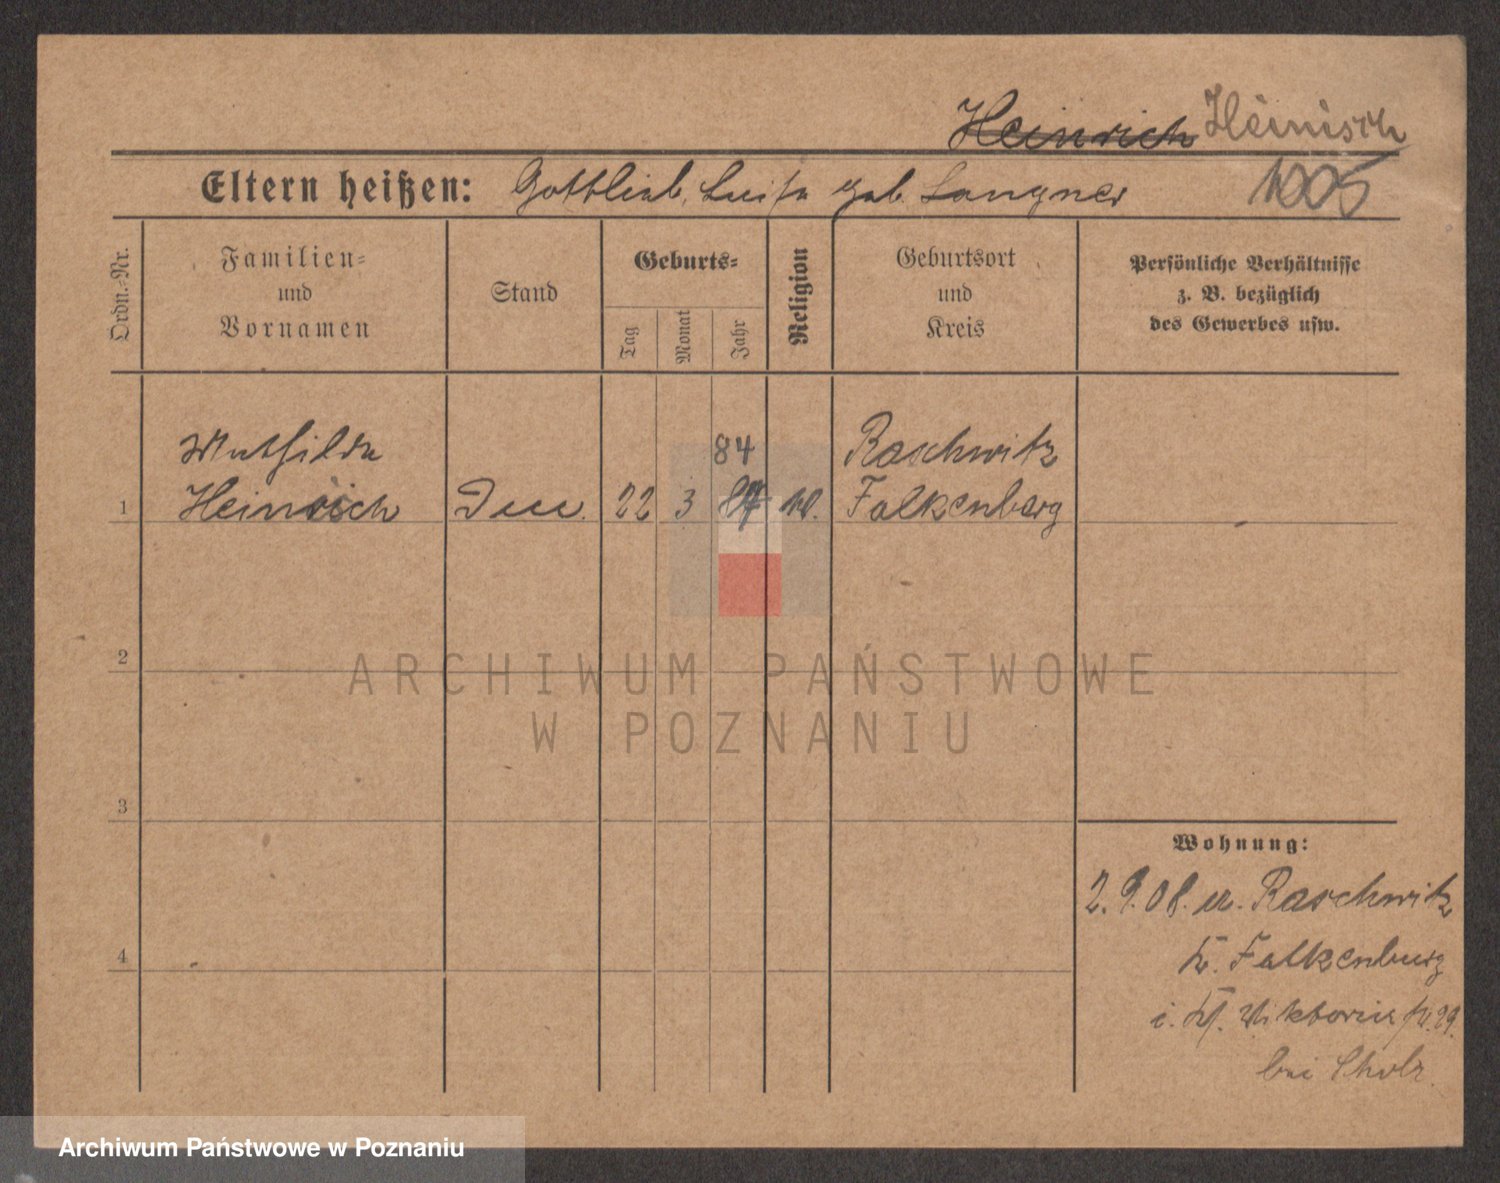 Heinrich Heinisch
Eltern heißen: Gottlieb, Luise geb. Langner
Ordn.-Nr.
Familien-
und
Vornamen
Stand
Geburts-
Tag
Monat
Jahr
Religion
Geburtsort
und
Kreis
Persönliche Verhältnisse
z. B. bezüglich
des Gewerbes usw.
Mathilde 84 Raschwitz
1 Heinrich 22 3 Falkenberg
2
ARCHIWUM PAŃSTWOWE
W POZNANIU
3
Wohnung:
2.9.08. Raschwitz
4 Falkenburg
i. Viktoriastr. 29.
bei Scholz
Archiwum Państwowe w Poznaniu